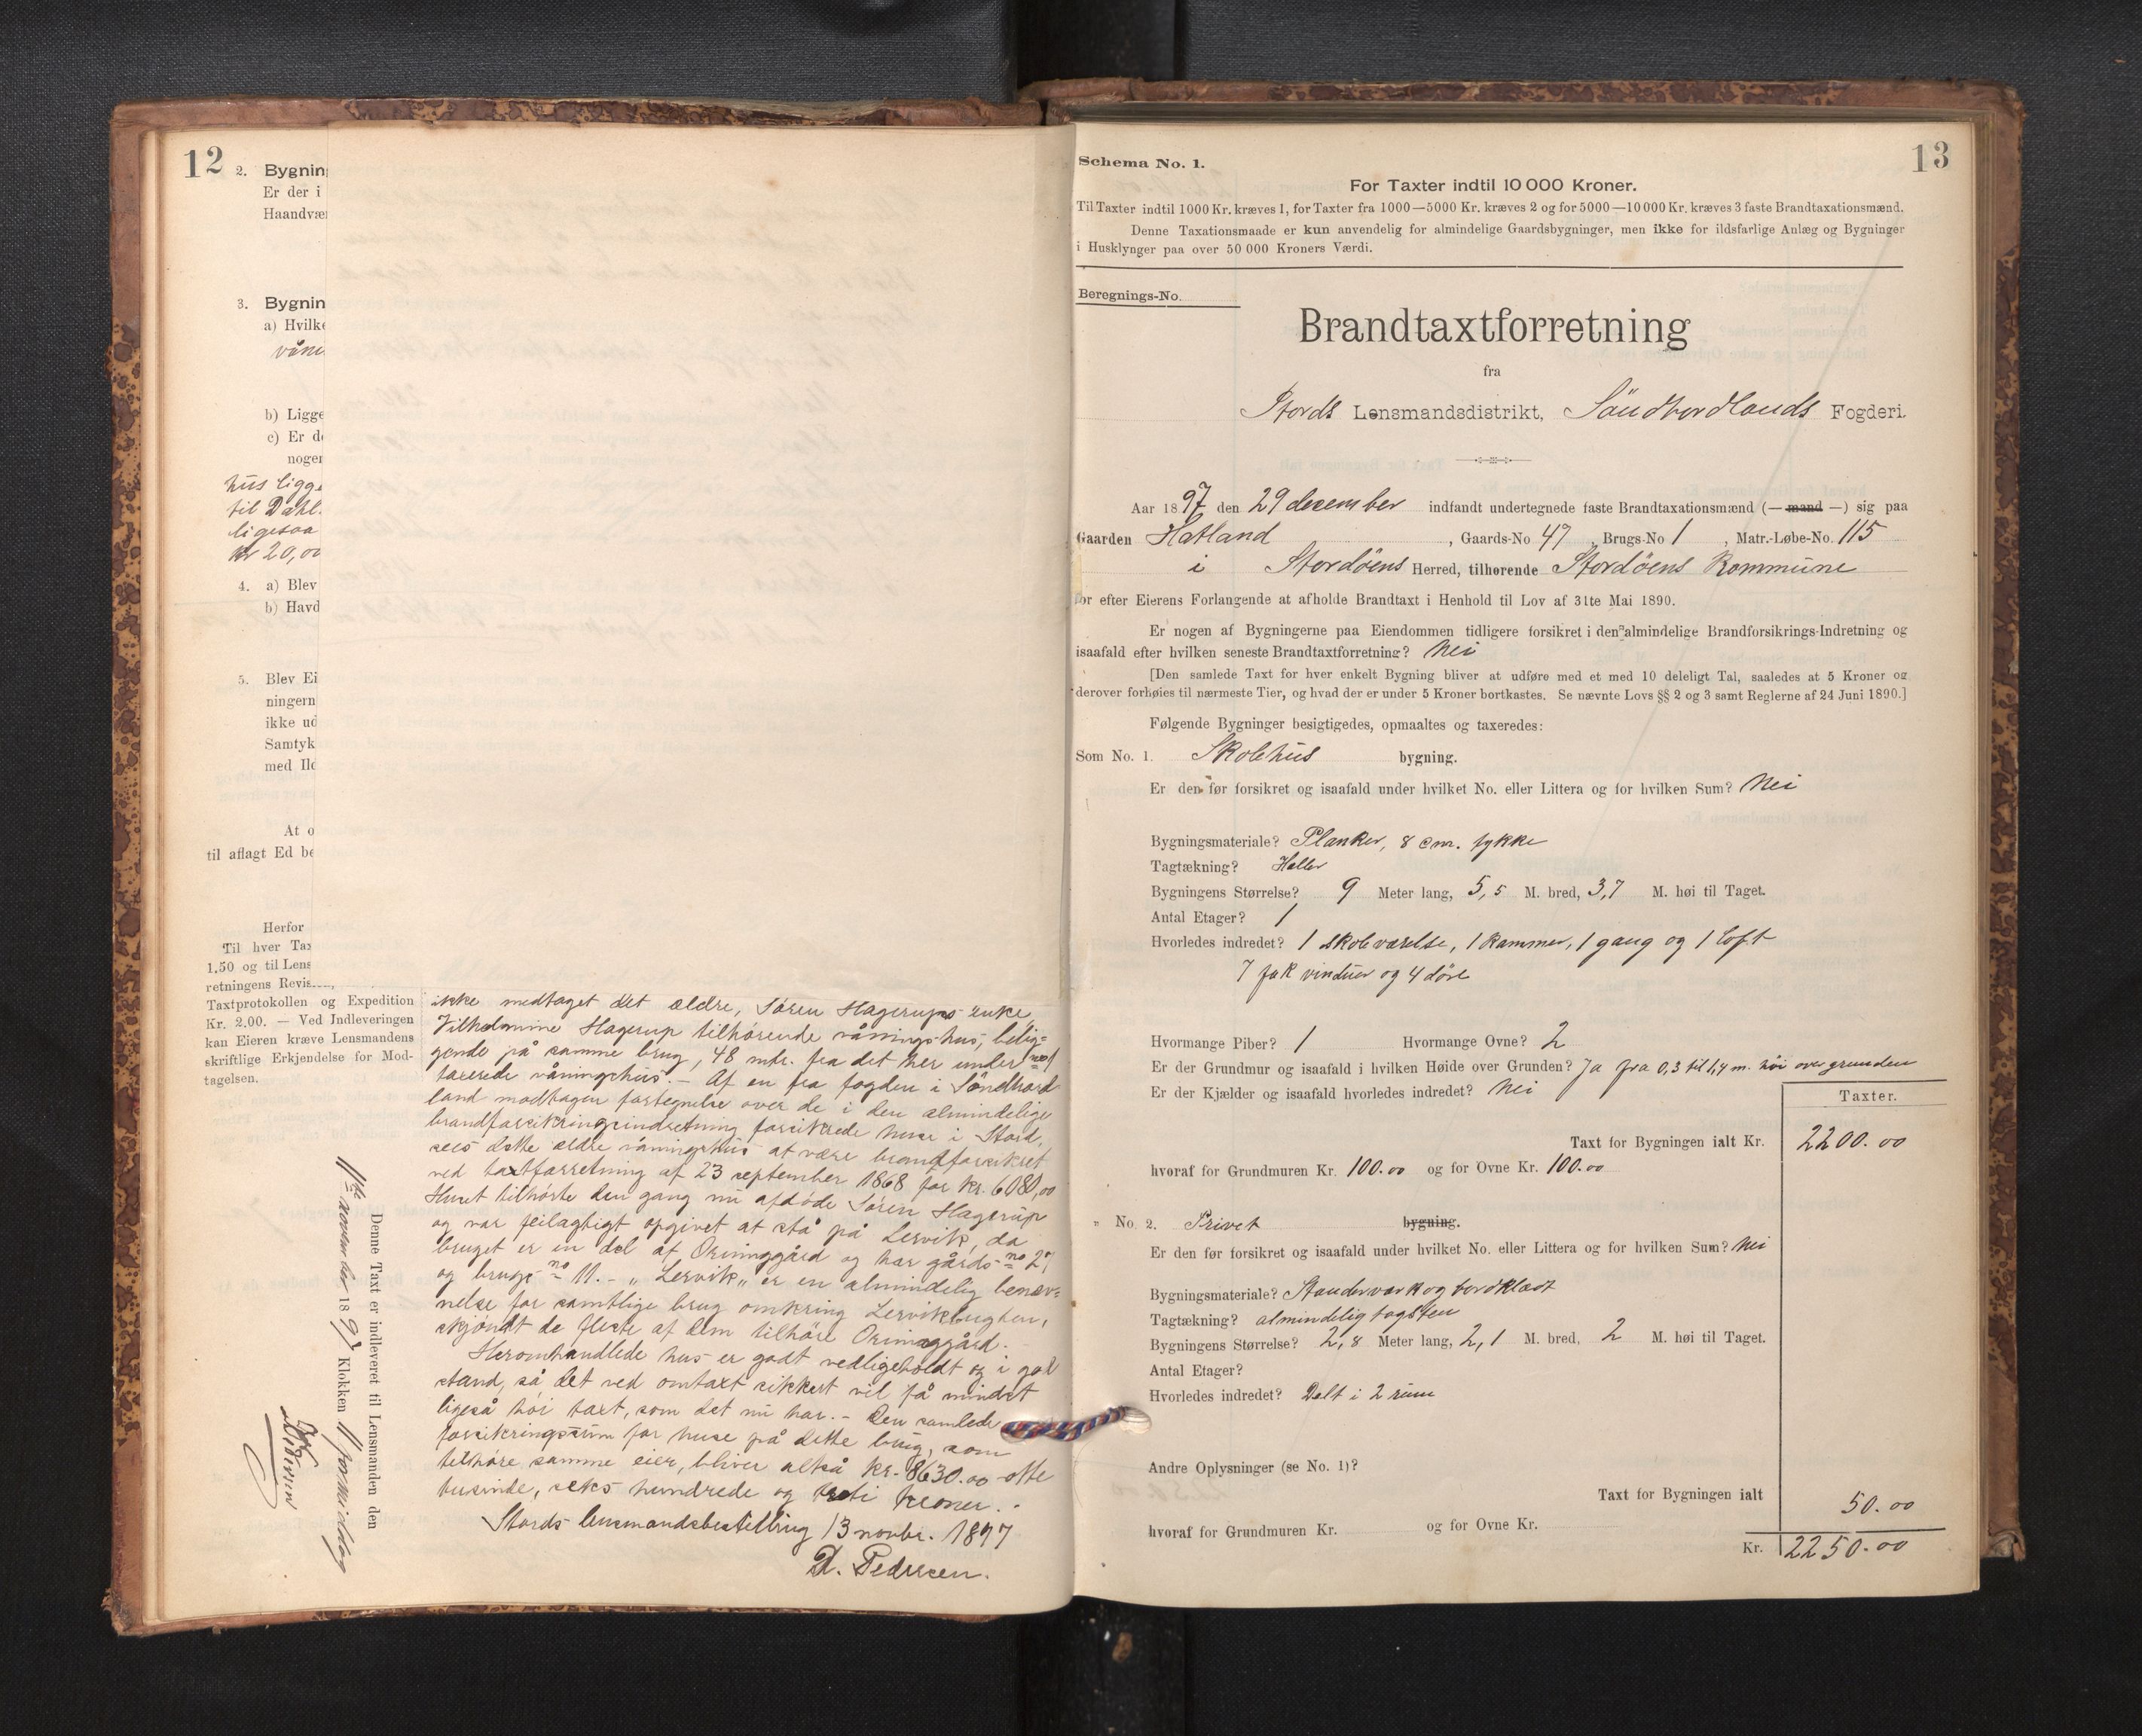 12
2. Bygnin
Er der i
Haandvær
3. Bygnin
a) Hvilke
våni
b) Ligge
c) Er de
noger
hus ligge
til Dahl.
ligesaa
kr 20,00
4. a) Blev
b) Havd
5. Blev Ei
ningern
ikke ud
Samtyk
med Ild
At o
til aflagt Ed be
Herfor
Til hver Tax
1.50 og til Lens
retningens Revis
Taxtprotokollen og Expedition
Kr. 2.00. — Ved Indleveringen
kan Eieren kræve Lensmandens
skriftlige Erkjendelse for Mod-
tagelsen.
Denne Taxt er indleveret til Lensmanden den
11te november 1897 Klokken 11 formiddag
ikke medtaget det ældre, Søren Hagerups enke,
Vilhelmine Hagerup tilhörende våningshus, belig-
gende på samme brug, 48 mtr. fra det her under no 1
taxerede våningshus. - Af en fra fogden i Söndhord-
land modtagen fortegnelse over de i den almindelige
brandforsikringsindretning forsikrede huse i Stord,
sees dette ældre våningshus at være brandforsikret
ved taxtforretning af 23 september 1868 for kr. 6080,00
Huset tilhörte den gang nu afdöde Sören Hagerup
og var feilagtigt opgivet at stå på Lervik, da
bruget er en del af Orninggård og har gårds-no 27
og brugs-no 11. - „Lervik„ er en almindelig benæv-
nelse for samtlige brug omkring Lervikbugten,
skjöndt de fleste af dem tilhöre Orninggård.
Heromhandlede hus er godt vedligeholdt og i god
stand, så det ved omtaxt sikkert vil få mindst
ligeså höi taxt, som det nu har. - Den samlede
forsikringssum for huse på dette brug, som
tilhöre samme eier, bliver altså kr. 8630.00 - otte
tusinde, seks hundrede og treti kroner. -
Stords lensmandsbestilling 13 novbr. 1897
D. Pedersen.
13
Schema No. 1.
For Taxter indtil 10 000 Kroner.
Til Taxter indtil 1000 Kr. kræves 1, for Taxter fra 1000—5000 Kr. kræves 2 og for 5000—10 000 Kr. kræves 3 faste Brandtaxationsmænd.
Denne Taxationsmaade er kun anvendelig for almindelige Gaardsbygninger, men ikke for ildsfarlige Anlæg og Bygninger
i Husklynger paa over 50 000 Kroners Værdi.
Beregnings-No.
Brandtaxtforretning
fra
Stords Lensmandsdistrikt, Söndhordlands Fogderi.
Aar 1897 den 29 december indfandt undertegnede faste Brandtaxationsmænd (— mand —) sig paa
Gaarden Hatland, Gaards-No 47, Brugs-No 1, Matr.-Løbe-No. 115
i Stordöens Herred, tilhørende Stordöens Kommune
for efter Eierens Forlangende at afholde Brandtaxt i Henhold til Lov af 31te Mai 1890.
Er nogen af Bygningerne paa Eiendommen tidligere forsikret i den almindelige Brandforsikrings-Indretning og
isaafald efter hvilken seneste Brandtaxtforretning? Nei
[Den samlede Taxt for hver enkelt Bygning bliver at udføre med et med 10 deleligt Tal, saaledes at 5 Kroner og
derover forhøies til nærmeste Tier, og hvad der er under 5 Kroner bortkastes. Se nævnte Lovs §§ 2 og 3 samt Reglerne af 24 Juni 1890.]
Følgende Bygninger besigtigedes, opmaaltes og taxeredes:
Som No. 1. Skolehus bygning.
Er den før forsikret og isaafald under hvilket No. eller Littera og for hvilken Sum? Nei
Bygningsmateriale? Planker, 8 cm. tykke
Tagtækning? Heller
Bygningens Størrelse? 9 Meter lang, 5,5 M. bred, 3,7 M. høi til Taget.
Antal Etager? 1
Hvorledes indredet? 1 skoleværelse, 1 kammer, 1 gang og 1 loft
7 fak vinduer og 4 döre
Hvormange Piber? 1 Hvormange Ovne? 2
Er der Grundmur og isaafald i hvilken Høide over Grunden? Ja fra 0,3 til 1,4 m. höi over grunden
Er der Kjælder og isaafald hvorledes indredet? Nei
Taxter.
Taxt for Bygningen ialt Kr. 2200.00
hvoraf for Grundmuren Kr. 100.00 og for Ovne Kr. 100.00
" No. 2. Privet bygning.
Er den før forsikret og isaafald under hvilket No. eller Littera og for hvilken Sum? Nei
Bygningsmateriale? Standerværk og bordklædt
Tagtækning? almindelig tagsten
Bygningens Størrelse? 2,8 Meter lang, 2,1 M. bred, 2 M. høi til Taget.
Antal Etager?
Hvorledes indredet? Delt i 2 rum
Andre Oplysninger (se No. 1)?
Taxt for Bygningen ialt 50.00
hvoraf for Grundmuren Kr. og for Ovne Kr.
Kr. 2250.00